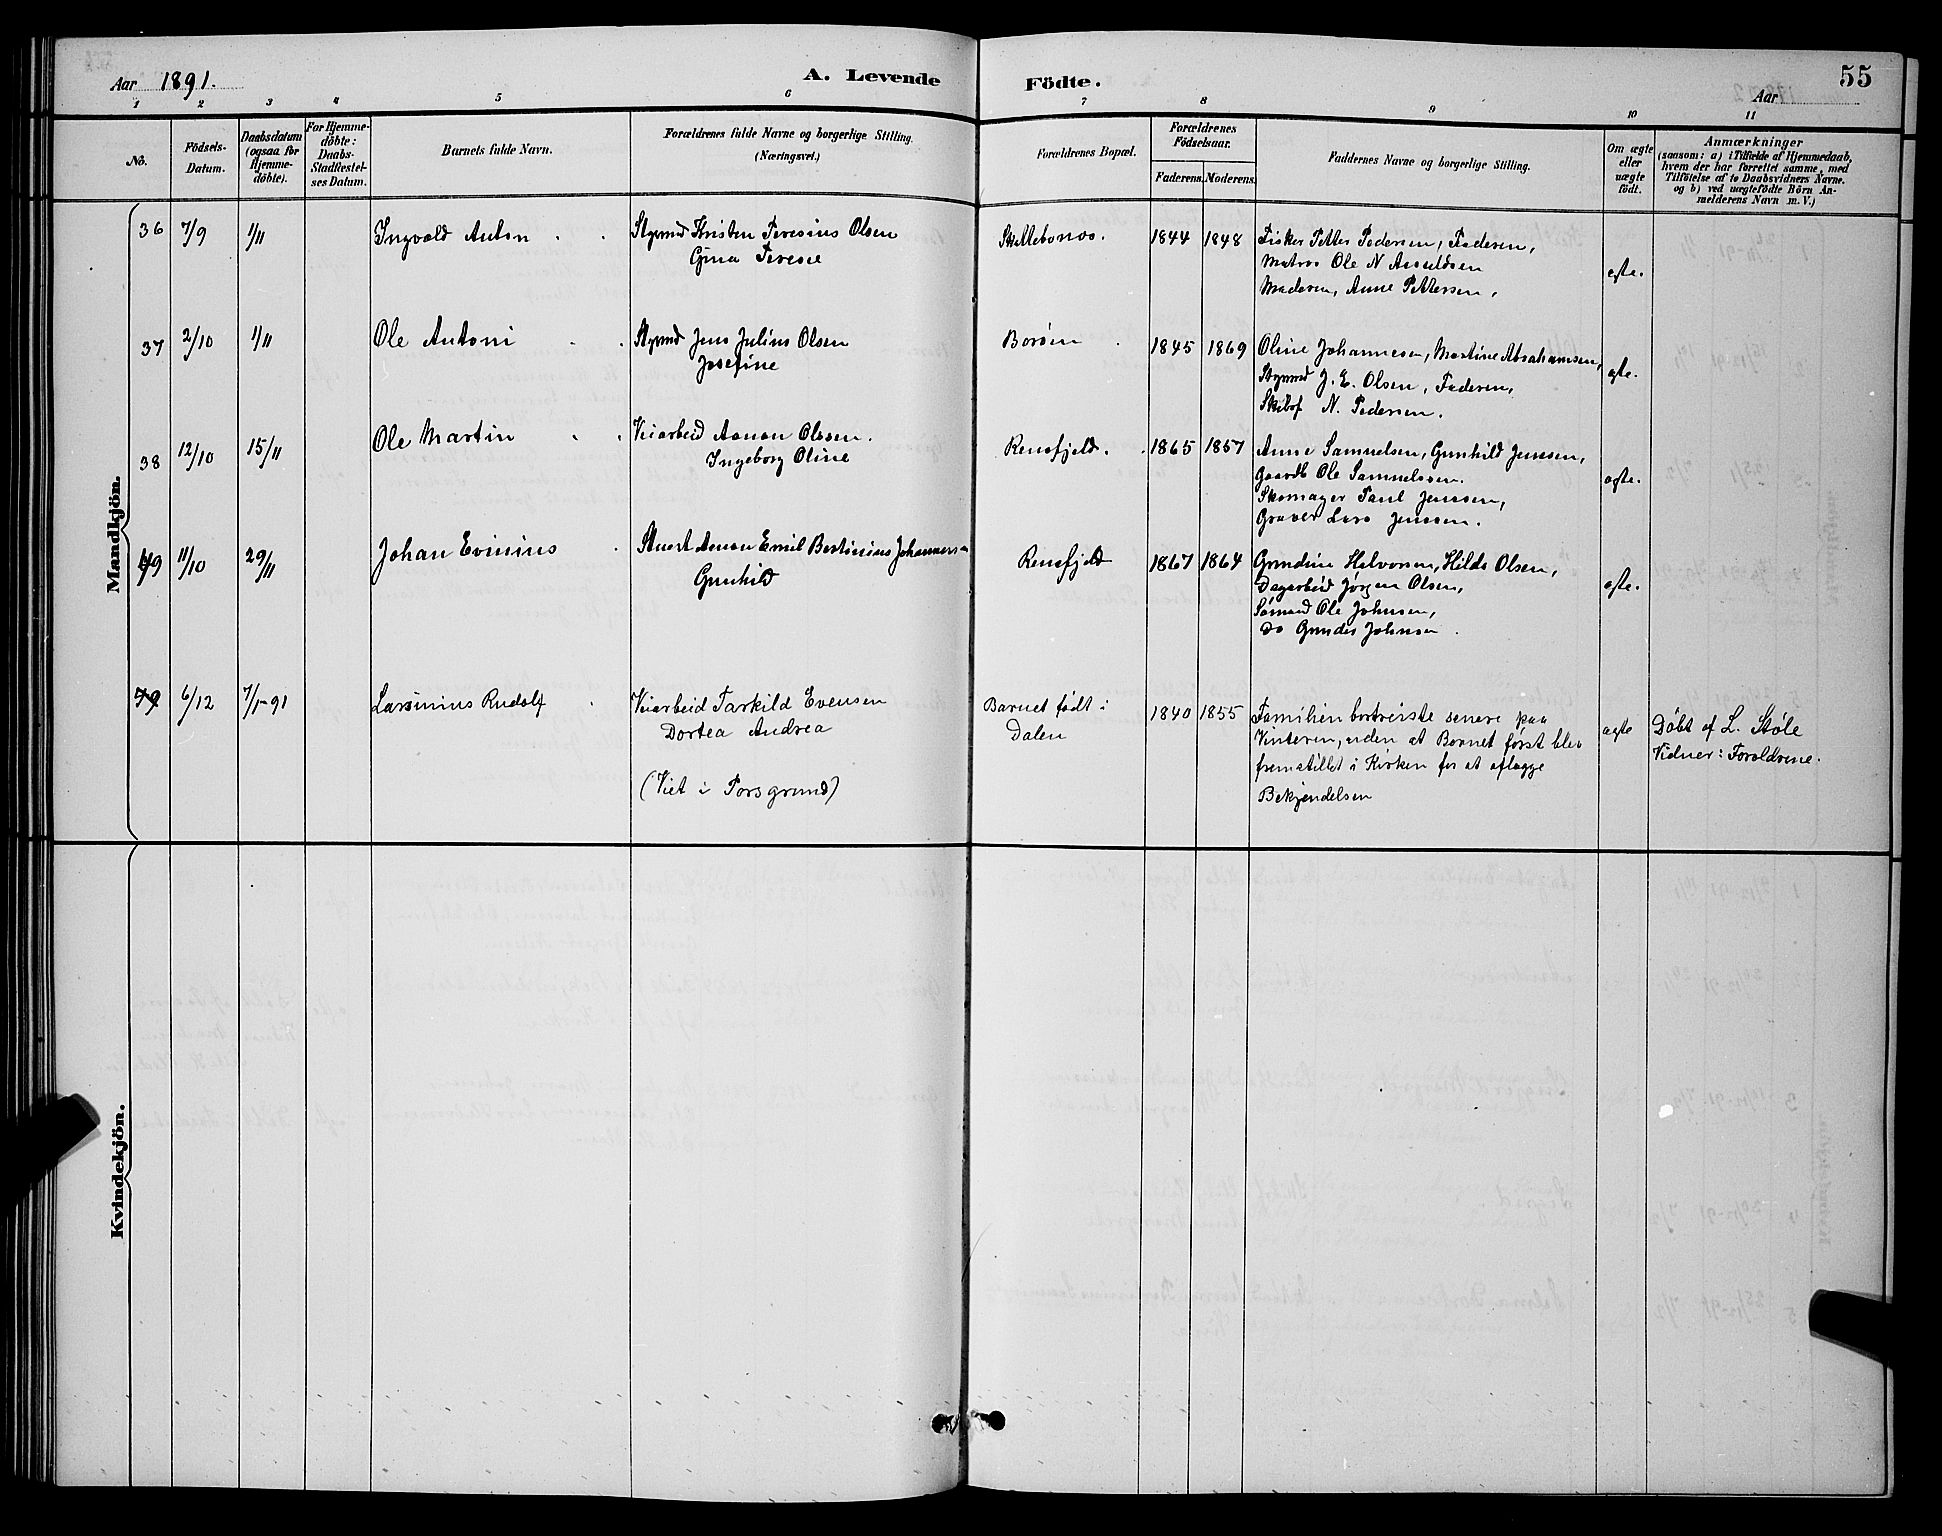 Aar 1891.
A. Levende
Födte.
Aar
55
1 2 3 4 5 6 7 8 9 10 11
No.
Födsels-
Datum.
Daabsdatum
(ogsaa for
Hjemme-
döbte).
For Hjemme-
döbte:
Daabs-
Stadfæstel-
ses Datum.
Barnets fulde Navn.
Forældrenes fulde Navne og borgerlige Stilling.
(Næringsvei.)
Forældrenes Bopæl.
Forældrenes
Födselsaar.
Faderens. Moderens.
Faddernes Navne og borgerlige Stilling.
Om ægte
eller
uægte
födt.
Anmærkninger
(saasom: a) i Tilfælde af Hjemmedaab,
hvem der har forrettet samme, med
Tilföielse af to Daabsvidners Navne.
og b) ved uægtefödte Börn An-
melderens Navn m. V.)
Mandkjön.
36 7/9 1/11 Ingvald Anton
Styrmd Kristen Teresius Olsen
Gina Terese
1844 1848
Fisker Petter Pedersen, Faderen,
Matros Ole N
Moderen, Anne Pettersen,
ægte.
37 2/10 1/11 Ole Antoni
Styrmd Jens Julius Olsen
Josefine
Borøen
1845 1869
Oline Johannesen, Martine Abrahamsen,
Styrmd J. E. Olsen, Faderen,
Skibsf N. Pedersen.
ægte.
38 12/10 15/11 Ole Martin
Veiarbeid Aanon Olssen.
Ingeborg Oline
Rensfjeld.
1865 1857
Anne Samuelsen, Gunhild Jenssen,
Gaardb Ole Samuelssen.
Skomager Paul Jenssen,
Graver Lars Jenssen.
ægte.
11/10 29/11 Johan Evinius
Stuert Aanon Emil Bertinius Johannessen
Gunhild
Rensfjeld
1867 1864
Gundine Halvorsen, Hilda Olsen,
Dagarbeid Jørgen Olsen,
Sømand Ole Johnsen,
Do Gunder Johnsen.
ægte.
6/12 7/1-91 Larsinius Rudolf
Veiarbeid Tarkild Evensen
Dortea Andrea
(Viet i Porsgrund)
Barnet født i
Dalen
1840 1855
Familien bortreiste senere paa
Vinteren, uden at Barnet først blev
fremstillet i Kirken for at aflægge
Bekjendelsen
ægte
Døbt af L. Støle
Vidner: Forældrene.
Kvindekjön.